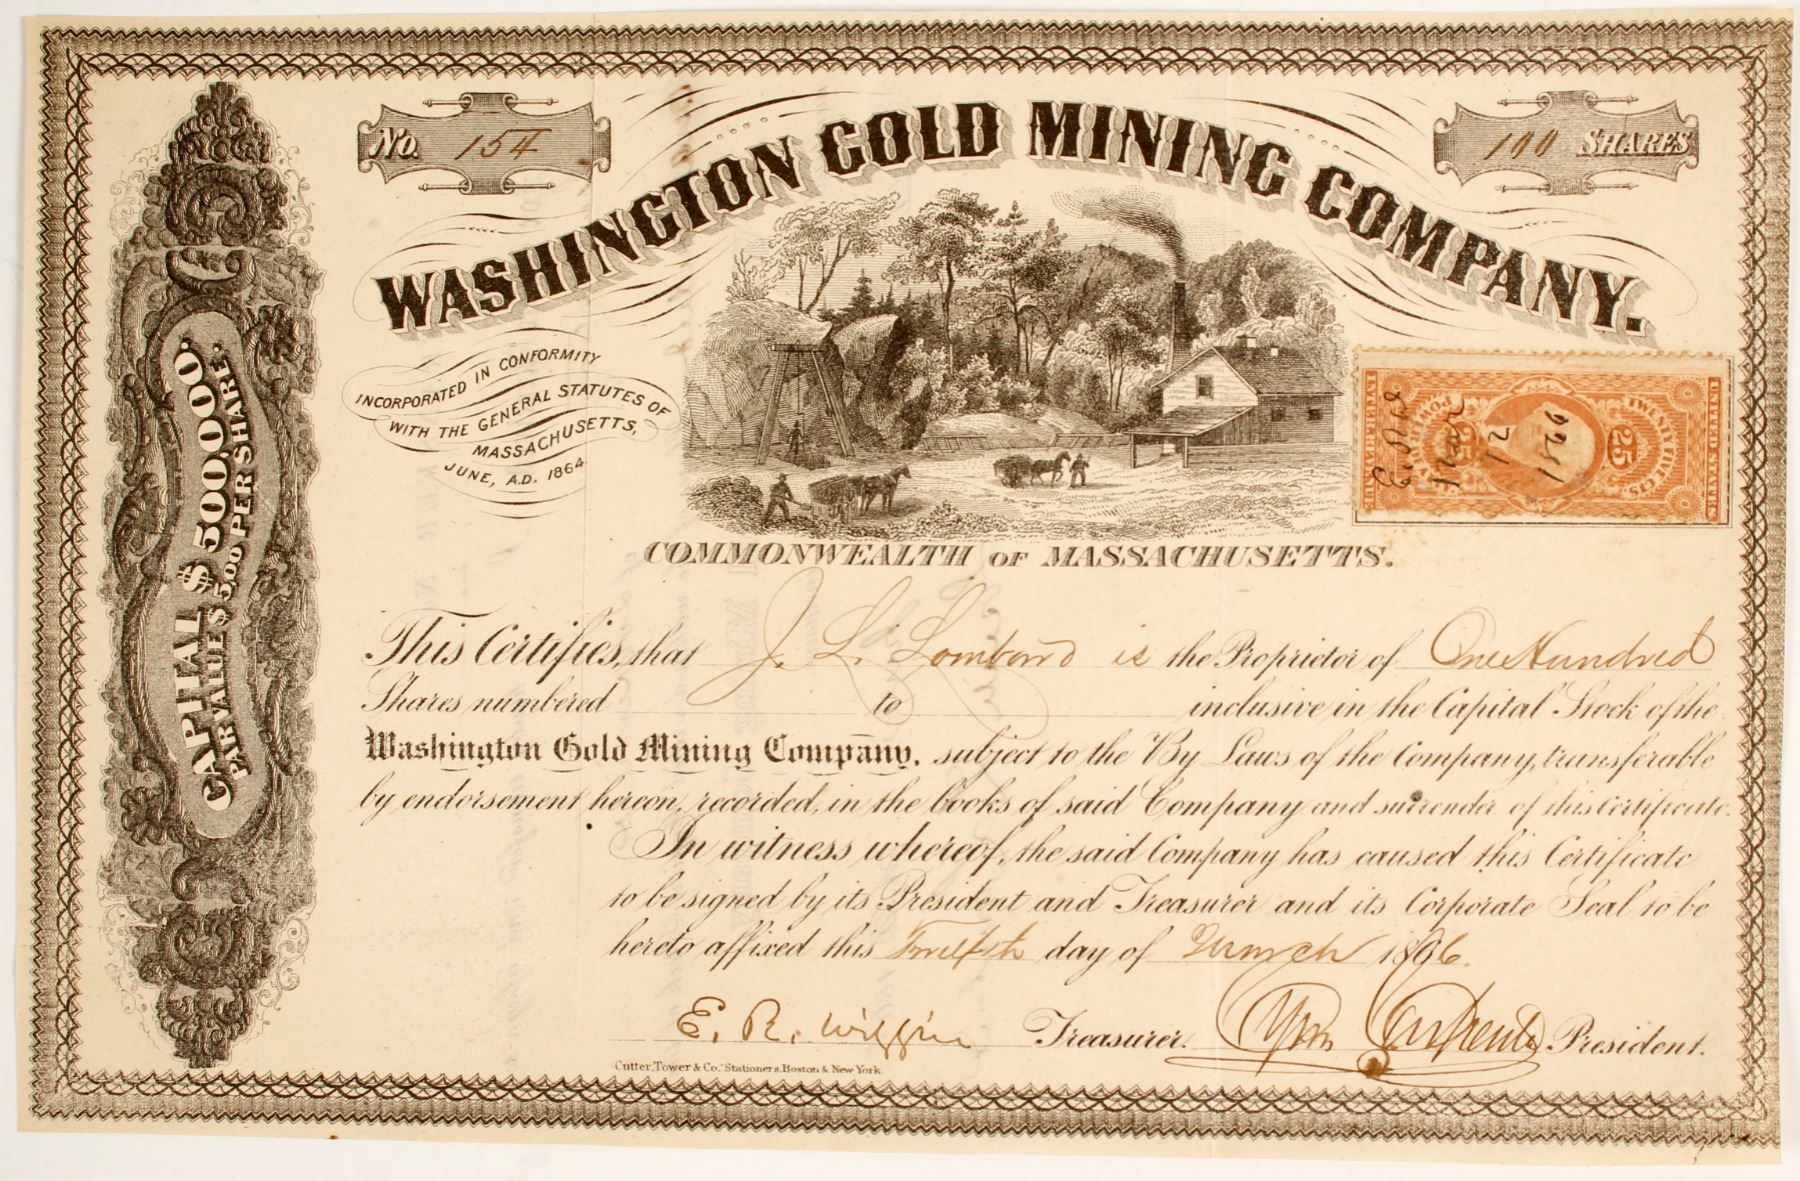 No. 154
100 SHARES
WASHINGTON GOLD MINING COMPANY.
INCORPORATED IN CONFORMITY
WITH THE GENERAL STATUTES OF
MASSACHUSETTS,
JUNE, A.D. 1864
CAPITAL $ 500,000.
PAR VALUE $ 5.00 PER SHARE.
UNITED STATES
TWENTY FIVE CTS.
25 25
POWER OF ATT'Y
INTER. REV.
E. R. W.
Mar
12
1866
COMMONWEALTH OF MASSACHUSETTS.
This Certifies, that J. L. Lombard is the Proprietor of One Hundred
Shares numbered to inclusive in the Capital Stock of the
Washington Gold Mining Company, subject to the By Laws of the Company, transferable
by endorsement hereon, recorded, in the books of said Company and surrender of this Certificate.
In witness whereof, the said Company has caused this Certificate
to be signed by its President and Treasurer and its Corporate Seal to be
hereto affixed this Twelfth day of March 1866.
E. R. Wiggin Treasurer. Wm President.
Cutter, Tower & Co. Stationers, Boston & New York.